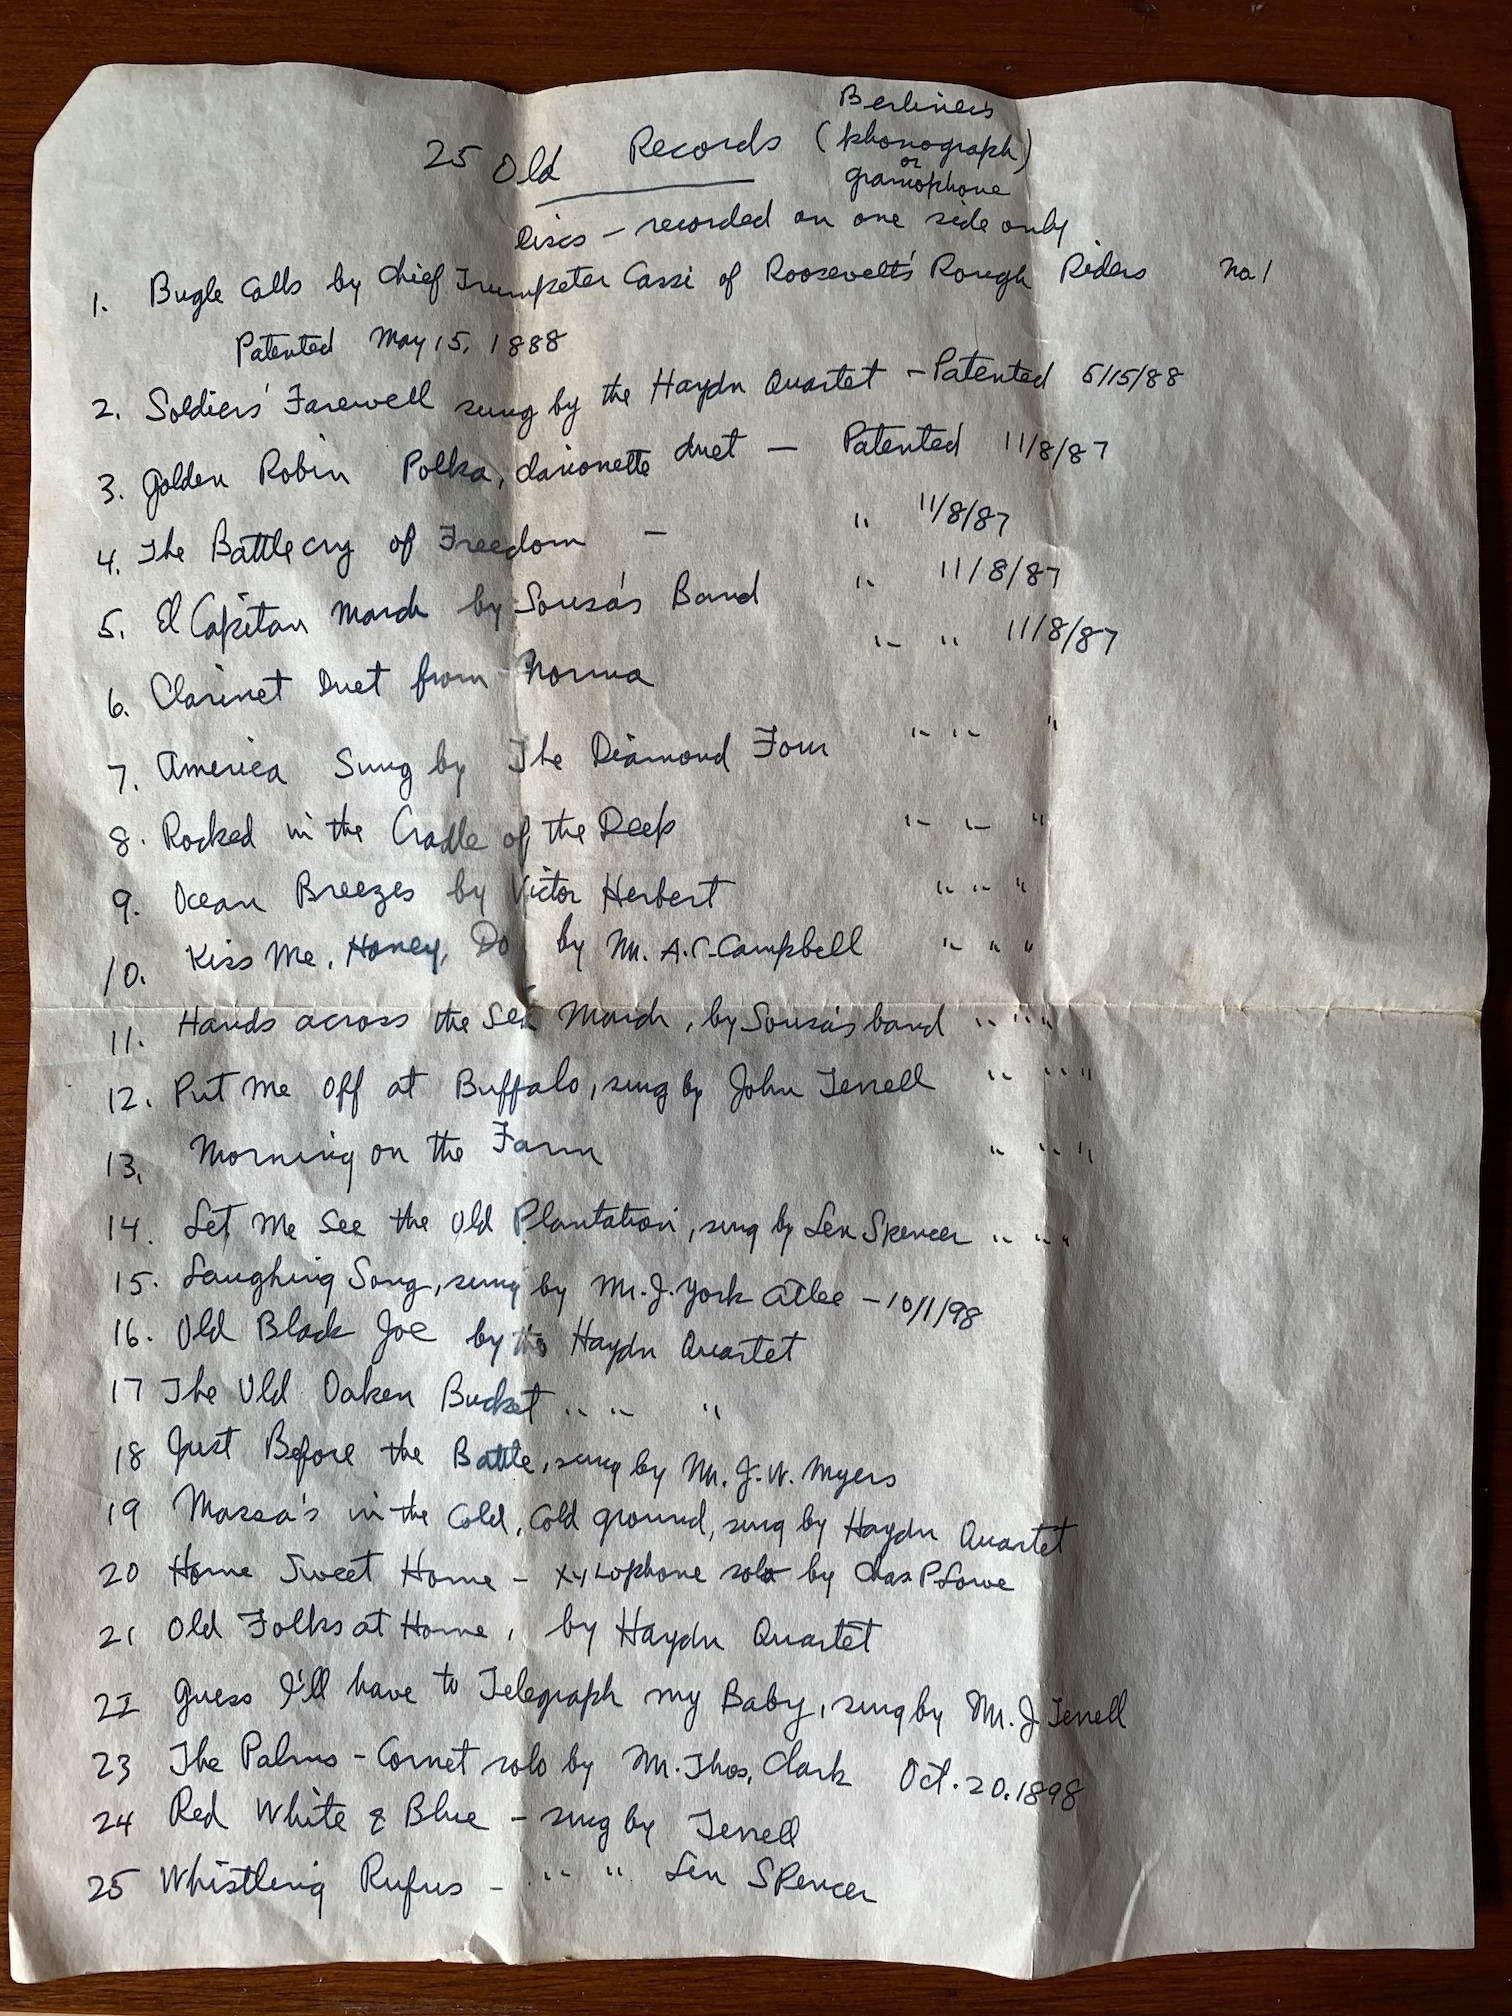 25 Old Records (Berliner's phonograph) or gramophone
Discs - recorded on one side only
1. Bugle Calls by Chief Trumpeter Cassi of Roosevelt's Rough Riders No 1
Patented May 15, 1888
2. Soldiers' Farewell sung by the Haydn Quartet - Patented 5/15/88
3. Golden Robin Polka, clarionette duet - Patented 11/8/87
4. The Battlecry of Freedom - " 11/8/87
5. El Capitan March by Sousa's Band " 11/8/87
6. Clarinet Duet from Norma " " 11/8/87
7. America Sung by The Diamond Four " " "
8. Rocked in the Cradle of the Deep " " "
9. Ocean Breezes by Victor Herbert " " "
10. Kiss Me, Honey, Do by Mr. A.C. Campbell " " "
11. Hands across the Sea March, by Sousa's band " " "
12. Put Me Off at Buffalo, sung by John Terrell " " "
13. Morning on the Farm " " "
14. Let Me See the Old Plantation, sung by Len Spencer " " "
15. Laughing Song, sung by Mr. J. York Atlee - 10/1/98
16. Old Black Joe by the Haydn Quartet
17 The Old Oaken Bucket " " "
18 Just Before the Battle, sung by Mr. J. W. Myers
19 Massa's in the Cold, Cold ground, sung by Haydn Quartet
20 Home Sweet Home - Xylophone solo by Chas P Lowe
21 Old Folks at Home, by Haydn Quartet
22 Guess I'll have to Telegraph my Baby, sung by Mr. J Terrell
23 The Palms - Cornet solo by Mr. Thos. Clark Oct. 20. 1898
24 Red White & Blue - sung by Terrell
25 Whistling Rufus - " " Len Spencer